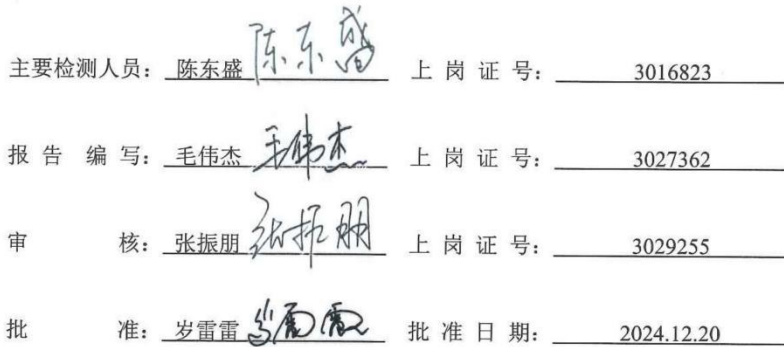 主要检测人员: 陈东盛 陈东盛 上岗证号: 3016823
报告编写: 毛伟杰 毛伟杰 上岗证号: 3027362
审核: 张振朋 张振朋 上岗证号: 3029255
批准: 岁雷雷 岁雷雷 批准日期: 2024.12.20